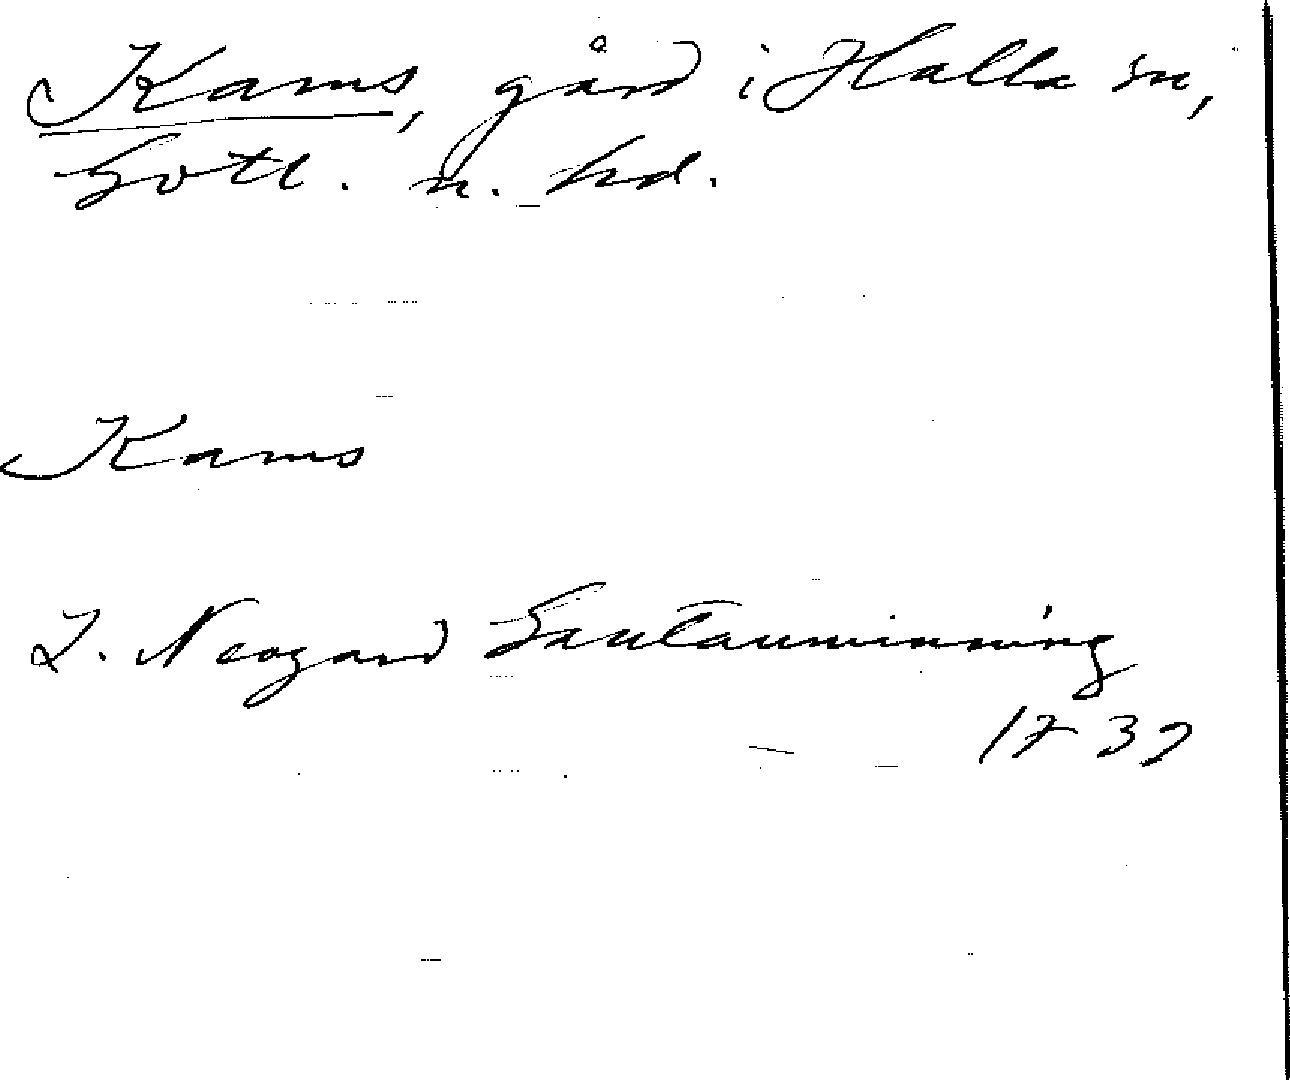 Kams, gård i Halla sn,
Gotl. n. hd.
Kams
J. Neogard Gautauminning
1732